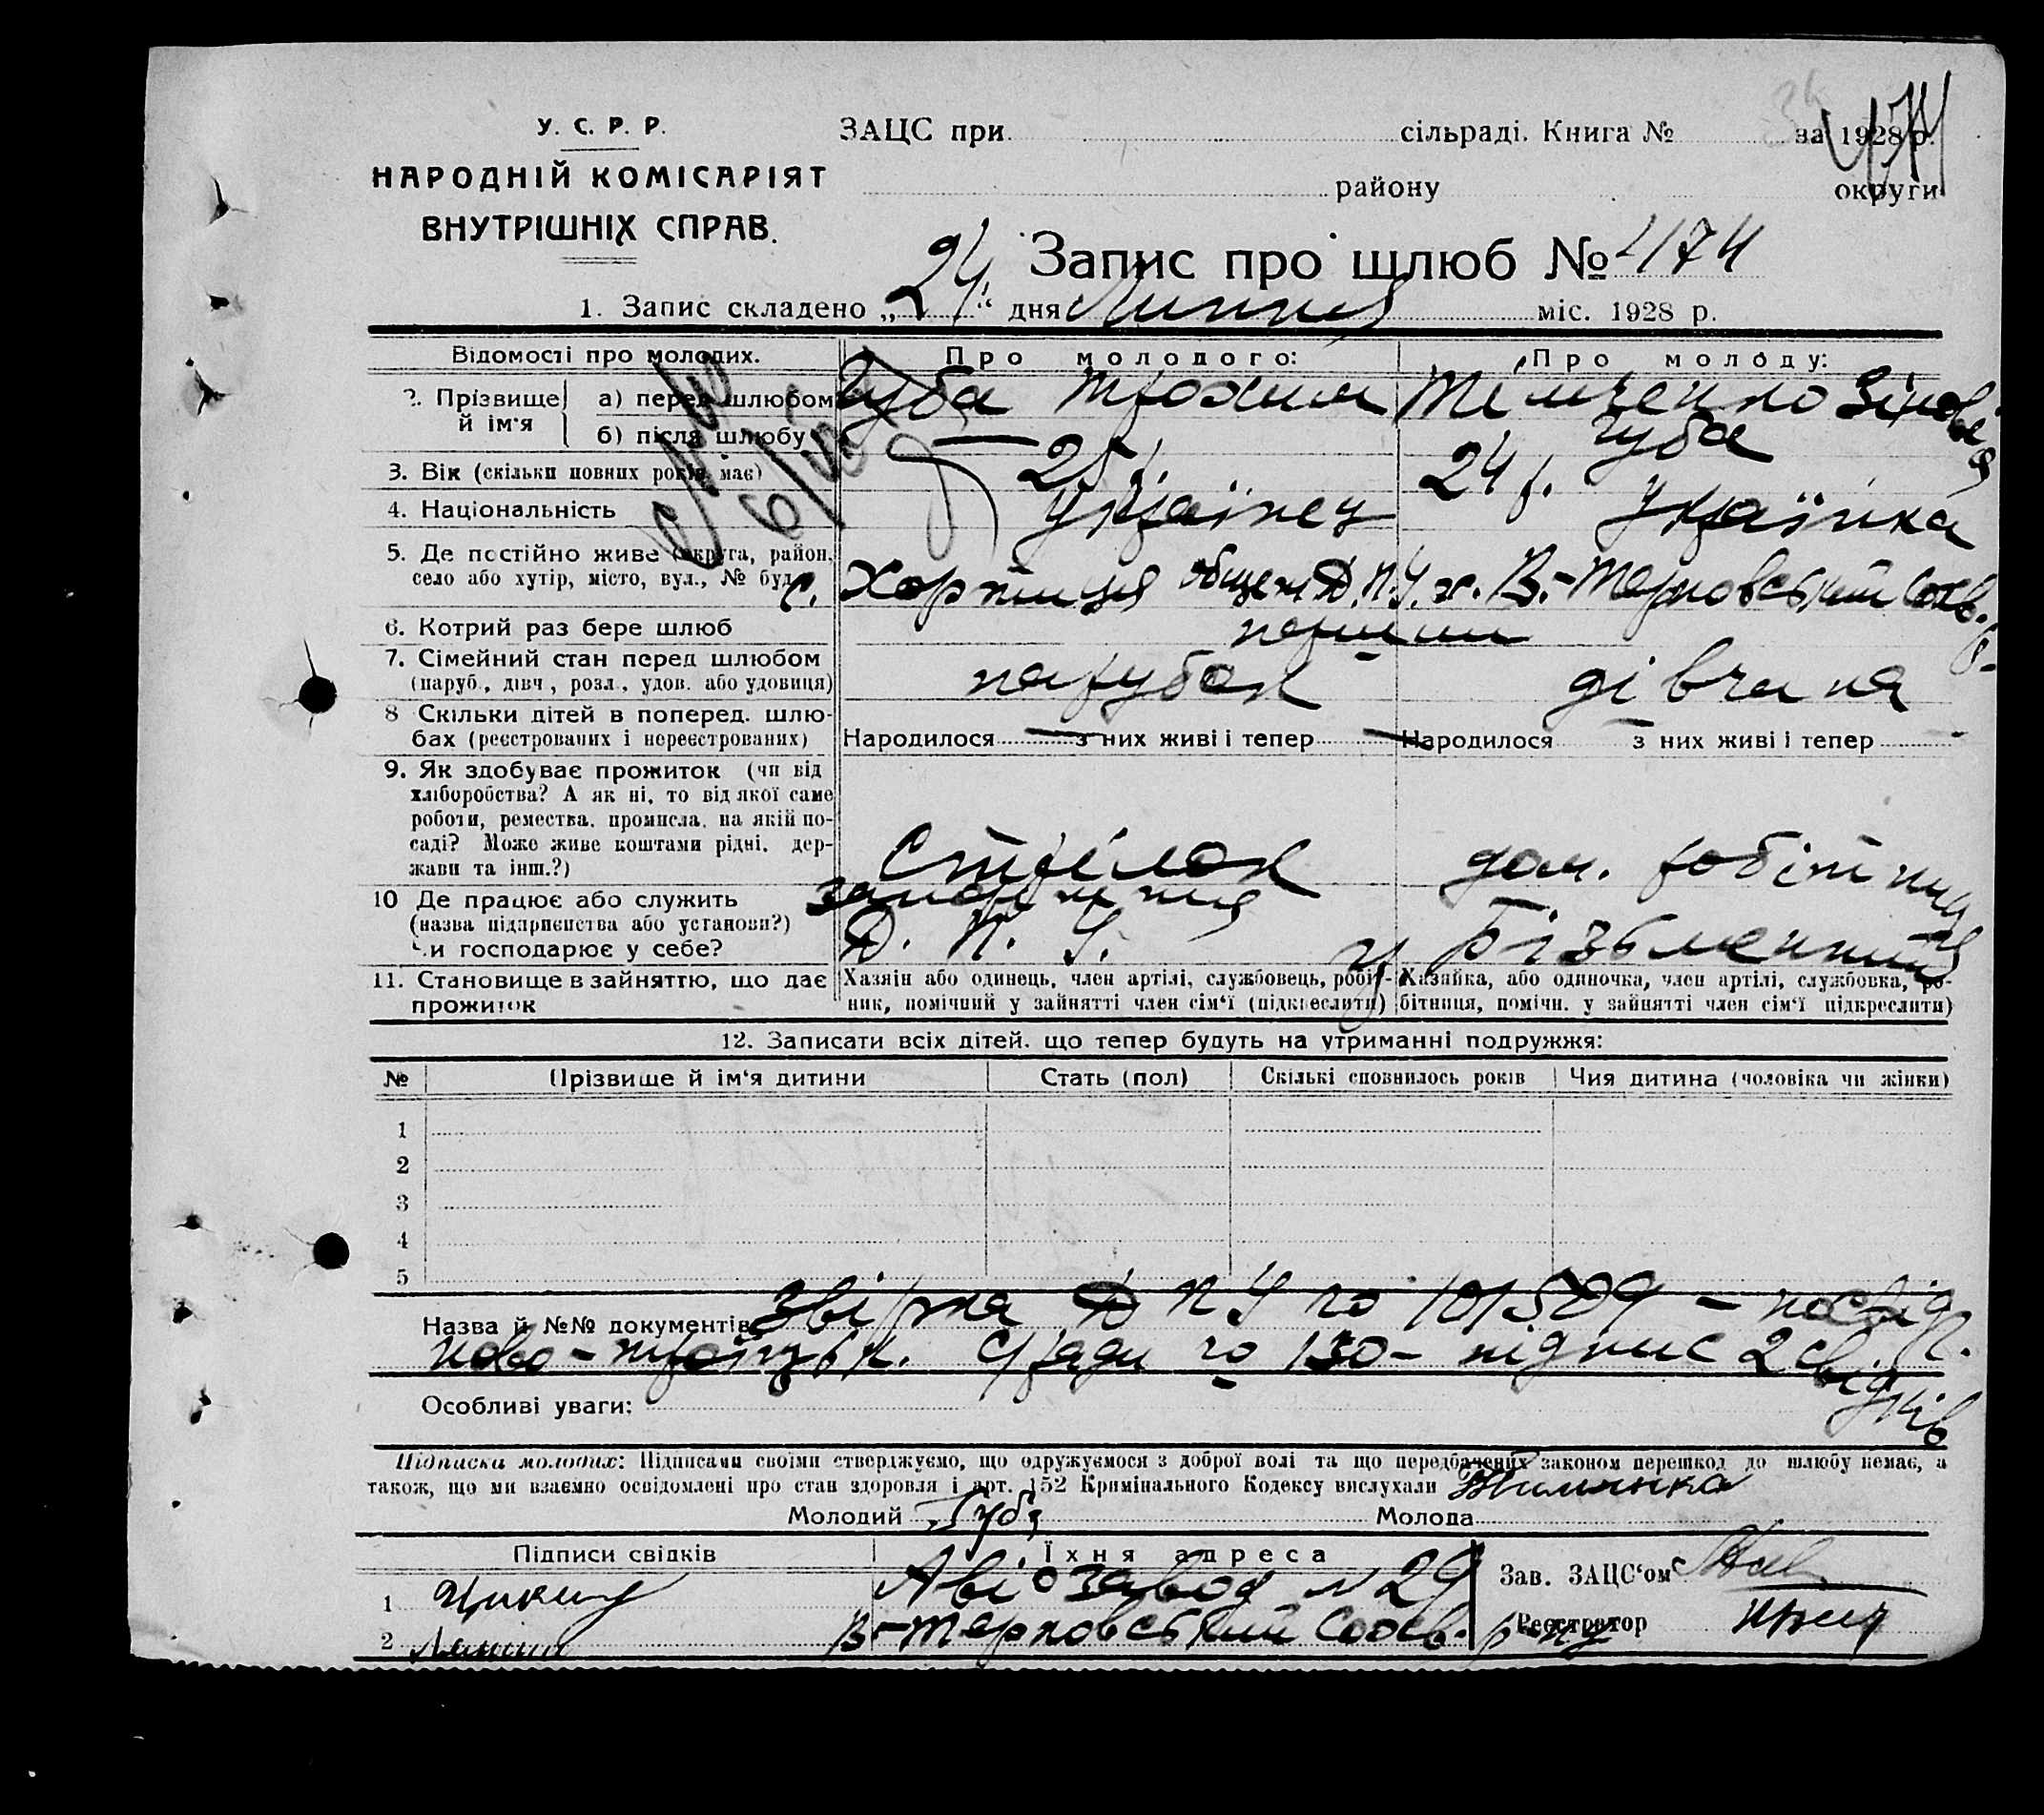 У. С. Р. Р.
НАРОДНІЙ КОМІСАРІЯТ
ВНУТРІШНІХ СПРАВ.
ЗАЦС при сільраді. Книга № за 1928 р.
району округи
Запис про шлюб № 474
1. Запис складено „24“ дня Липня міс. 1928 р.
Відомості про молодих. Про молодого: Про молоду:
2. Прізвище й ім'я а) перед шлюбом Губа Трохим Тімченко Зіновія
б) після шлюбу — Губа
3. Вік (скільки повних років має) 25 р. 24 р.
4. Національність Українец Українка
5. Де постійно живе (округа, район, село або хутір, місто, вул., № буд. с. Хортиця общеж Д.П.У. х. В.-Терновський Софів. р.
6. Котрий раз бере шлюб перший
7. Сімейний стан перед шлюбом парубок дівчина
(паруб., дівч., розл., удов. або удовиця)
8 Скільки дітей в поперед. шлю-
бах (реєстрованих і нереєстрованих) Народилося — з них живі і тепер — Народилося — з них живі і тепер
9. Як здобуває прожиток (чи від
хліборобства? А як ні, то від якої саме
роботи, ремества, промисла, на якій по-
саді? Може живе коштами рідні, дер-
жави та інш.?) Стрілок дом. робітниця
10 Де працює або служить
(назва підприєнства або установи?)
Чи господарює у себе? Д. П. У. у
11. Становище в зайняттю, що дає прожиток
Хазяїн або одинець, член артілі, службовець, робіт-
ник, помічний у зайнятті член сім'ї (підкреслити)
Хазяйка, або одиночка, член артілі, службовка, ро-
бітниця, помічн. у зайнятті член сім'ї підкреслити)
12. Записати всіх дітей, що тепер будуть на утриманні подружжя:
№ Прізвище й ім'я дитини Стать (пол) Скількі сповнилось років Чия дитина (чоловіка чи жінки)
1
2
3
4
5
Назва й №№ документів Звірка Д П У го 101509 – посвід.
Ново-троїцьк. с/ради го 130 – підпис 2 свідків
Особливі уваги:
Підписка молодих: Підписами своїми стверджуємо, що одружуємося з доброї волі та що передбачених законом перешкод до шлюбу немає, а
також, що ми взаємно освідомлені про стан здоровля і арт. 152 Кримінального Кодексу вислухали
Молодий Губа Молода
Підписи свідків Їхня адреса
1 Авіозавод № 29 Зав. ЗАЦС'ом
2 В-Терновський Софів. р-ну Реєстратор